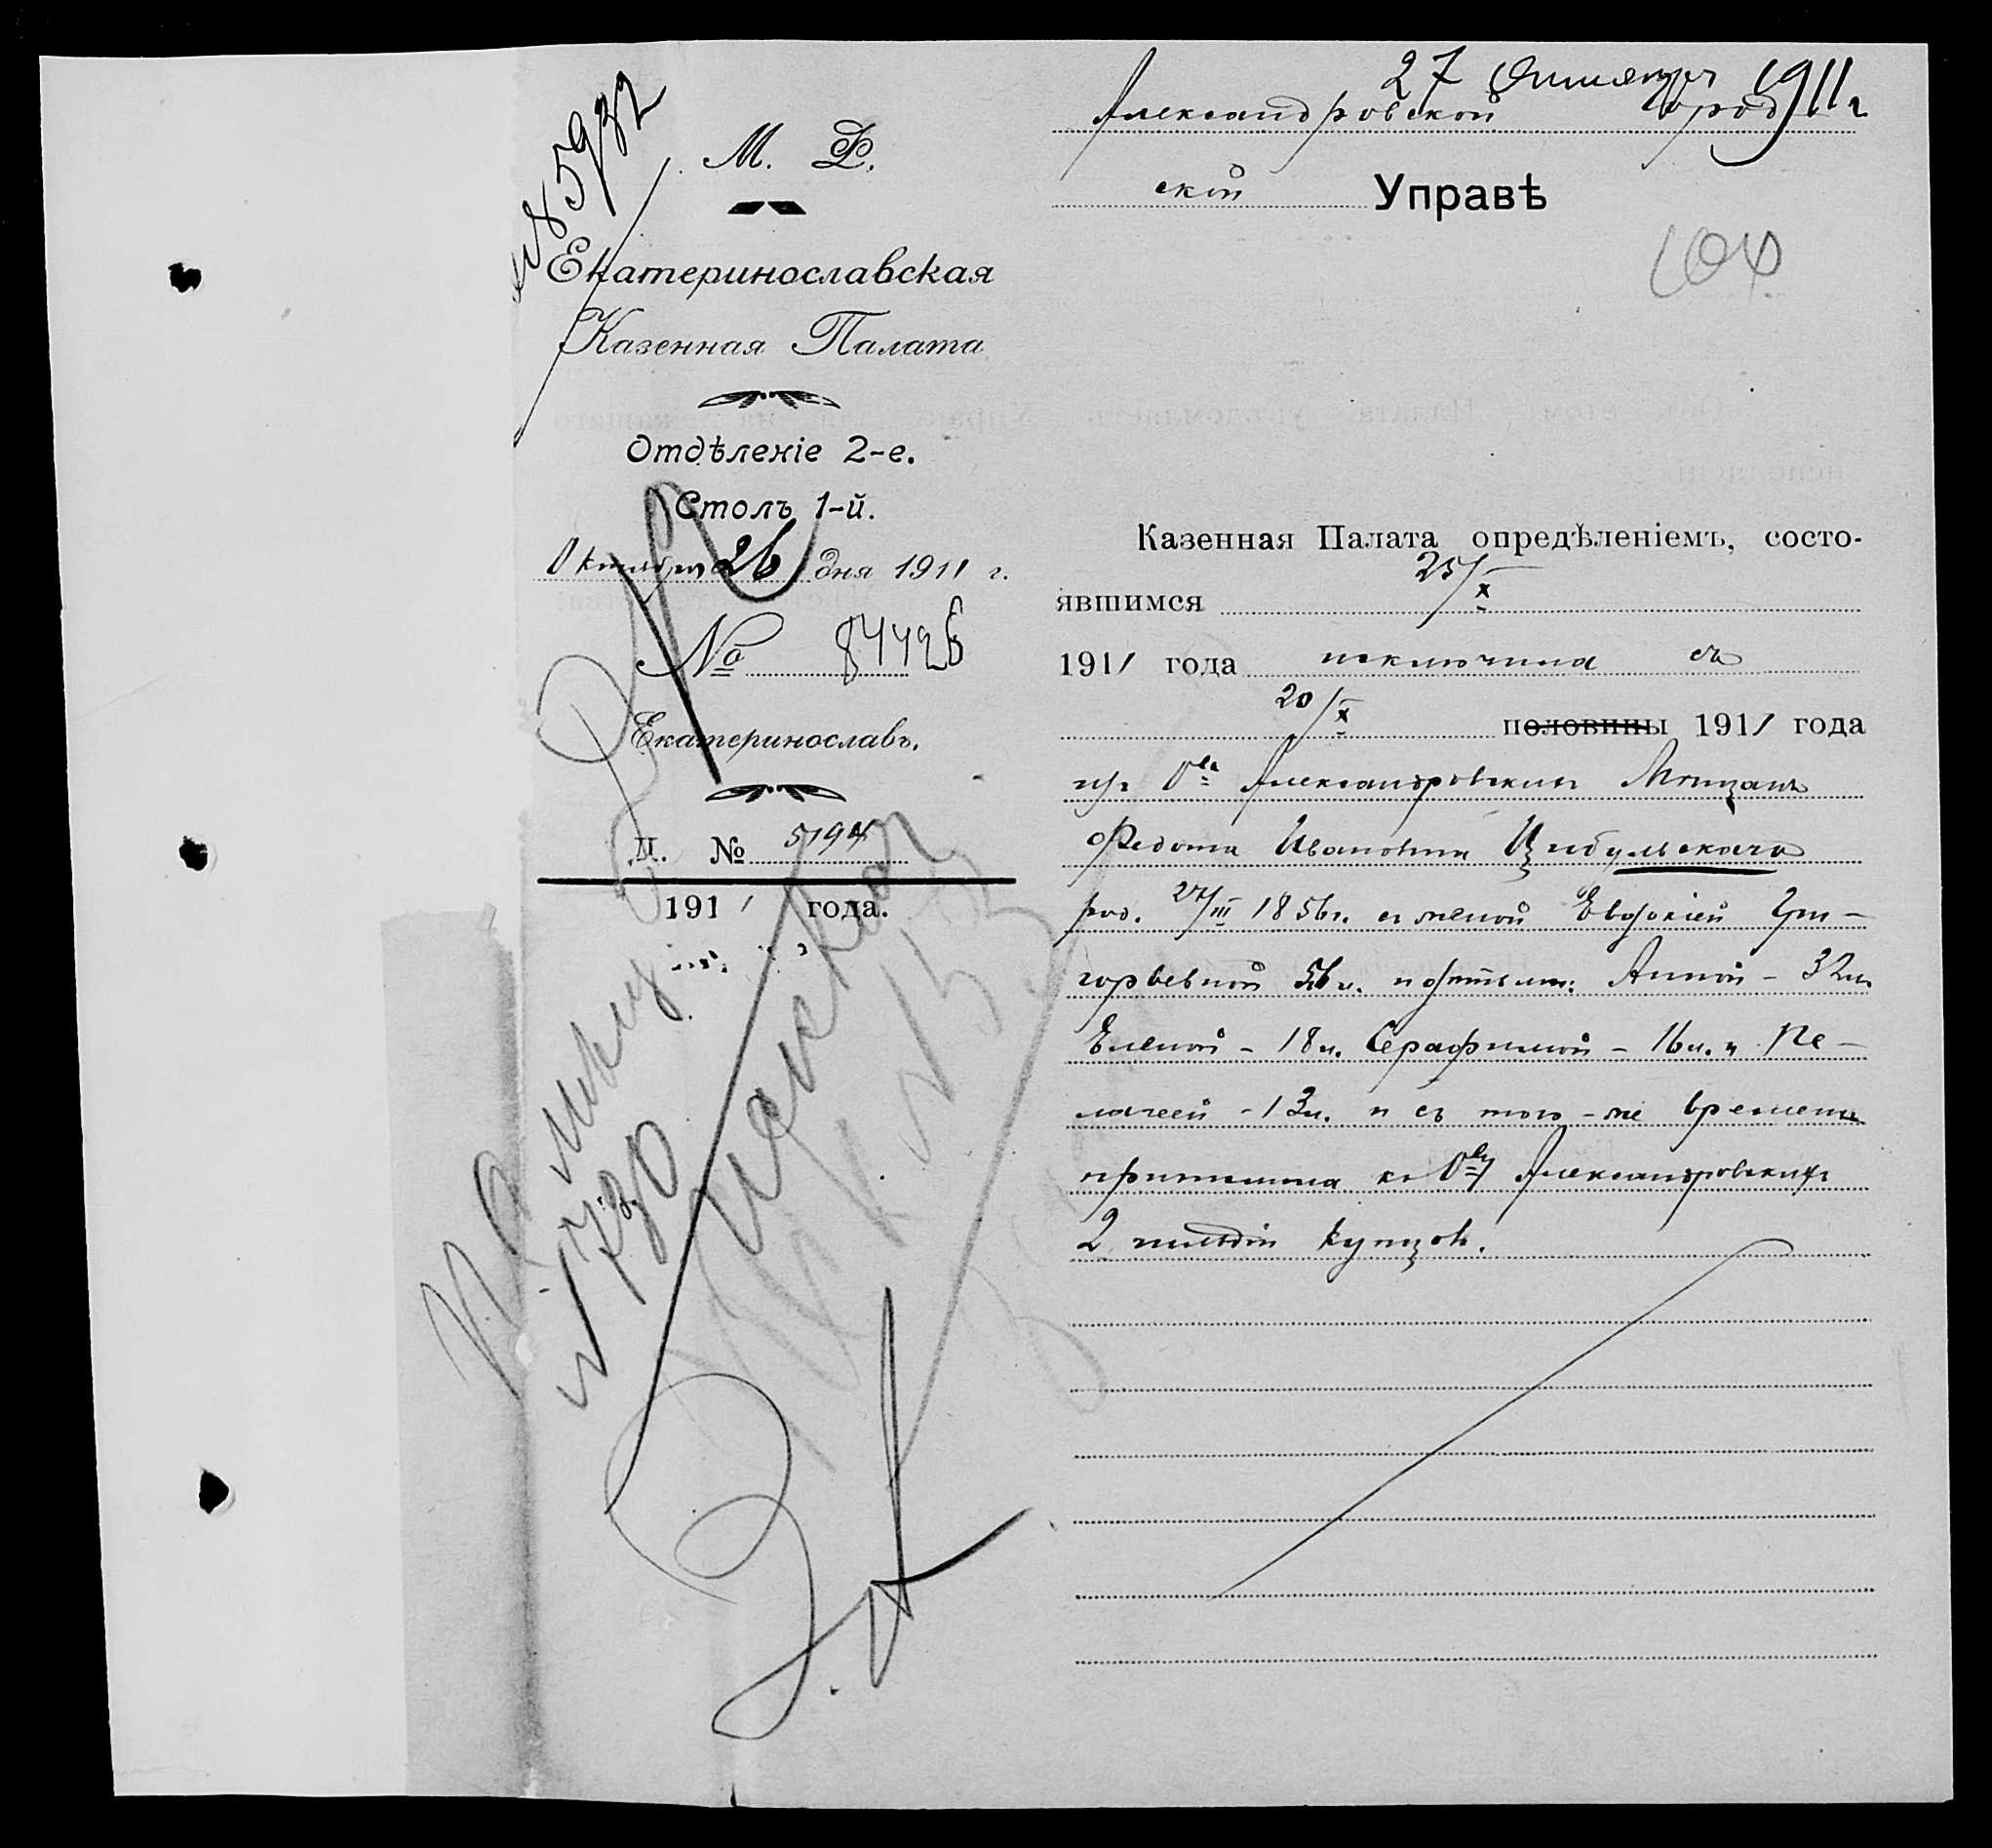 № 5932
М. Ф.
Екатеринославская
Казенная Палата
Отдѣленіе 2-е.
Столъ 1-й.
Октября 26 дня 1911 г.
№ 84426
Екатеринославъ.
Д. № 5194
1911 года.
№ 730
27 Октября 1911 г
Александровской Город
ской Управѣ
Казенная Палата опредѣленіемъ, состо-
явшимся 25/X
1911 года исключила съ
20/X половины 1911 года
изъ О-ва Александровскихъ Мѣщанъ
Федота Ивановича Цибульскаго
род. 27/III 1856г. съ женой Евдокіей Гри-
горьевной 56 л. и дѣтьми: Анной - 32 л.
Еленой - 18 л. Серафимой - 16 л. и Пе-
лагеей - 13 л. и съ того-же времени
причислила къ О-ву Александровскихъ
2 гильдіи купцовъ.